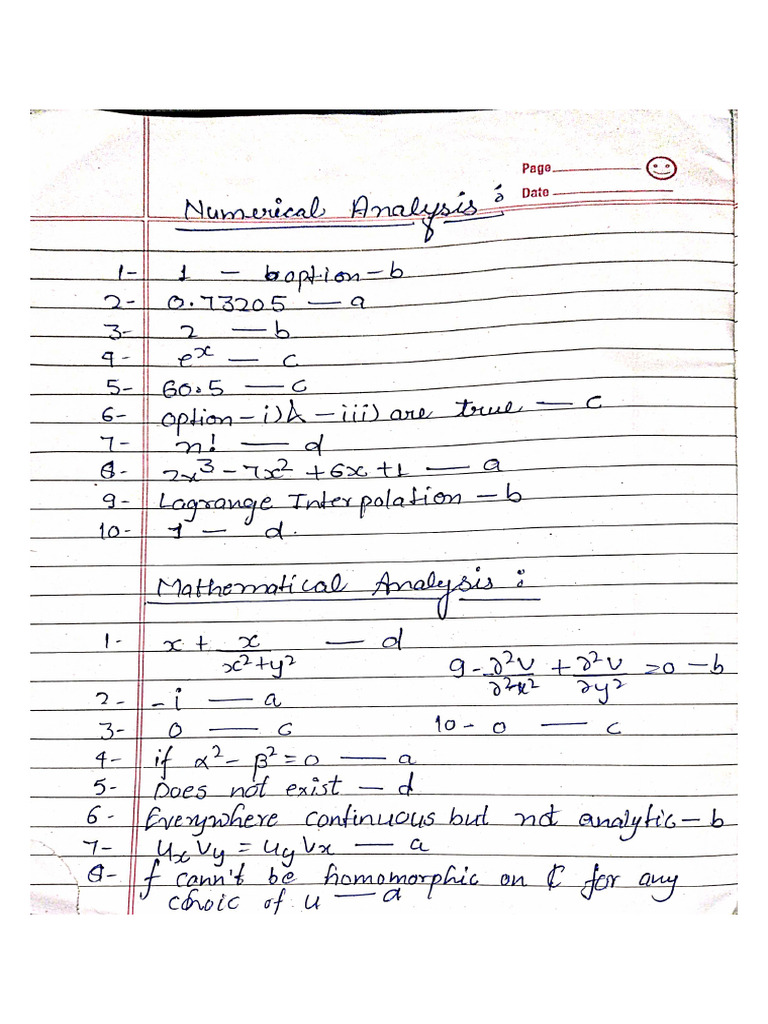 Page
Date
Numerical Analysis :
1- 1 - option-b
2- 0.73205 — a
3- 2 — b
4- eˣ — c
5- 60.5 — c
6- option-i) & -iii) are true — c
7- n! — d
8- 2x³-7x²+6x+1 — a
9- Lagrange Interpolation - b
10- 1 - d.
Mathematical Analysis :
1- x + x/(x²+y²) — d
9- ∂²V/∂²x² + ∂²V/∂y² =0 - b
2- -i — a
3- 0 — c
10- 0 — c
4- if α²-β²=0 — a
5- Does not exist - d
6- Everywhere continuous but not analytic - b
7- uₓvᵧ = uᵧvₓ — a
8- f cann't be homomorphic on ℂ for any
choic of u — d